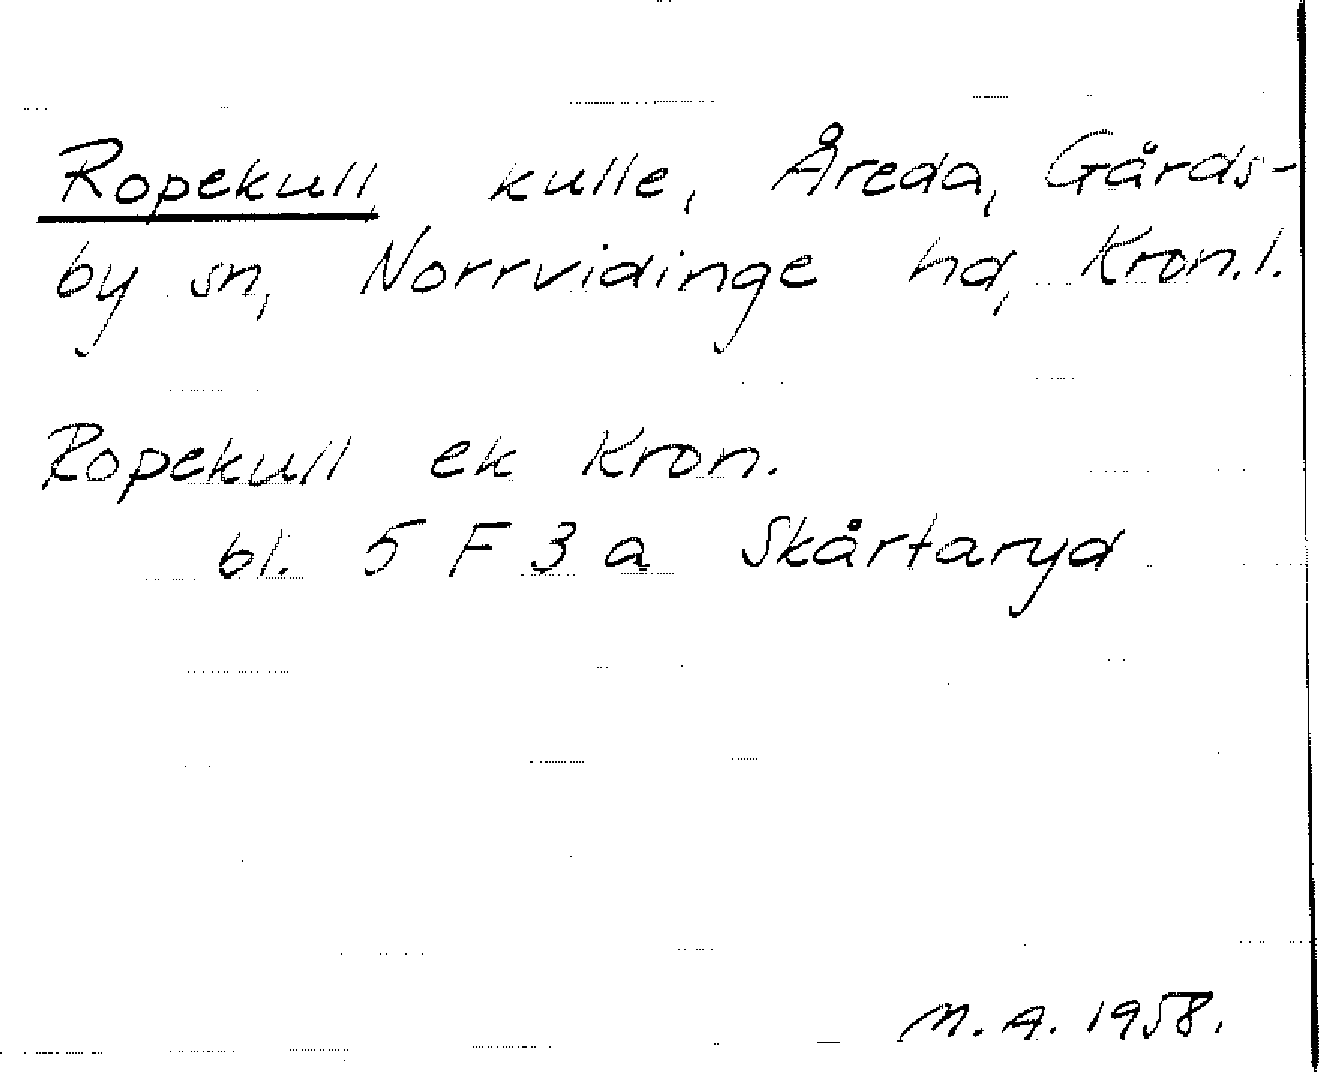 Ropekull kulle, Åreda, Gårds-
by sn, Norrvidinge hd, Kron.l.
Ropekull ek Kron.
bl. 5 F 3 a Skårtaryd
M. A. 1958.